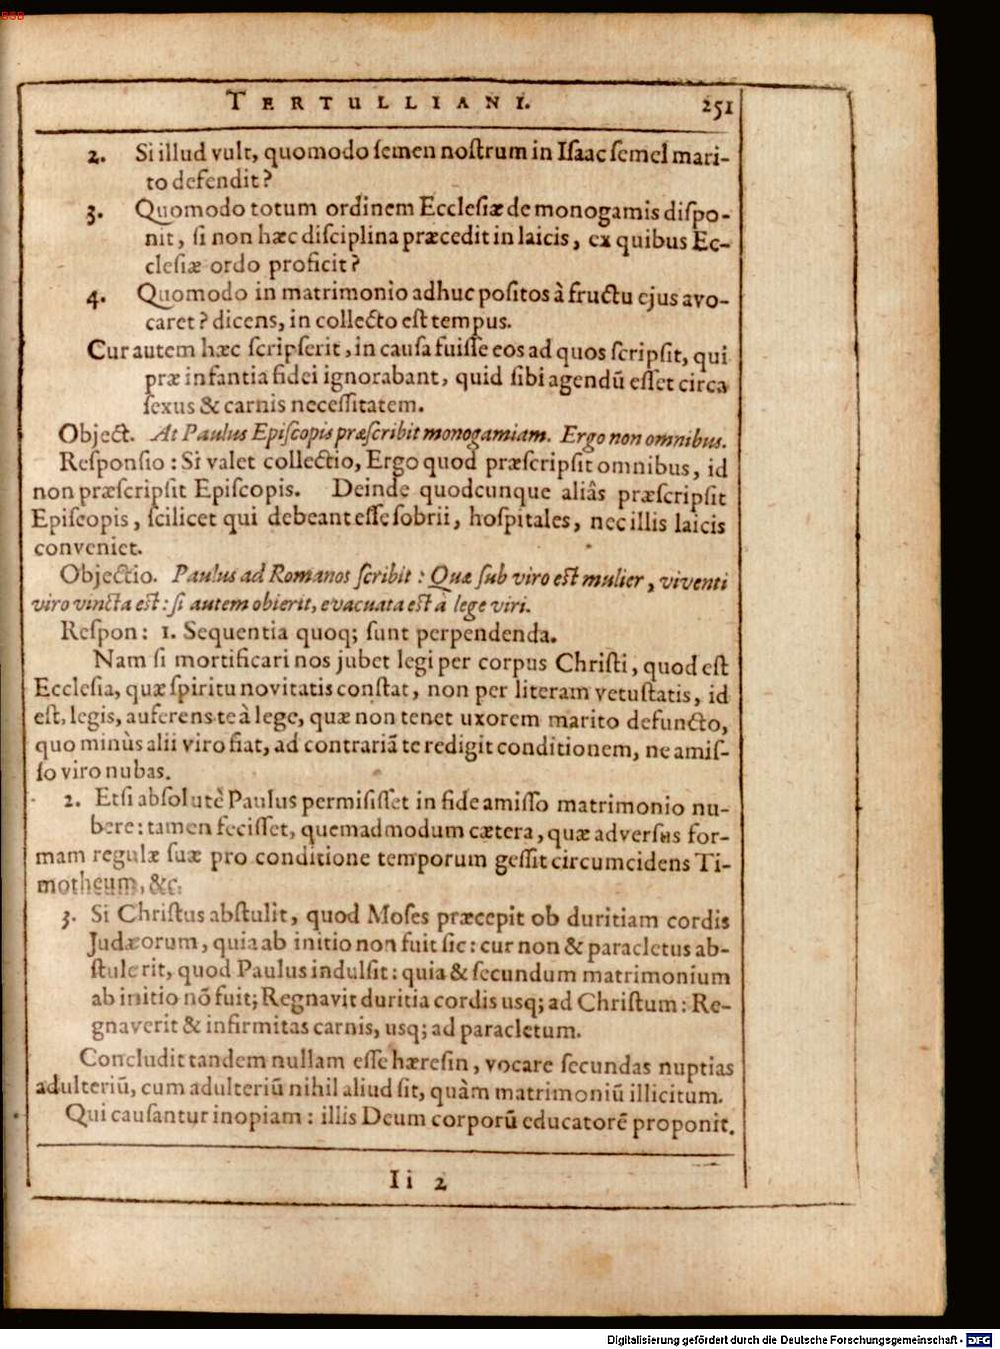 BSB
TERTULLIANI. 251
2. Si illud vult, quomodo ſemen noſtrum in Iſaac ſemel mari-
to defendit?
3. Quomodo totum ordinem Eccleſiæ de monogamis diſpo-
nit, ſi non hæc diſciplina præcedit in laicis, ex quibus Ec-
cleſiæ ordo proficit?
4. Quomodo in matrimonio adhuc poſitos à fructu ejus avo-
caret? dicens, in collecto eſt tempus.
Cur autem hæc ſcripſerit, in cauſa fuiſſe eos ad quos ſcripſit, qui
præ infantia fidei ignorabant, quid ſibi agendū eſſet circa
ſexus & carnis neceſſitatem.
Object. At Paulus Epiſcopis præſcribit monogamiam. Ergo non omnibus.
Reſponſio: Si valet collectio, Ergo quod præſcripſit omnibus, id
non præſcripſit Epiſcopis. Deinde quodcunque aliâs præſcripſit
Epiſcopis, ſcilicet qui debeant eſſe ſobrii, hoſpitales, nec illis laicis
conveniet.
Objectio. Paulus ad Romanos ſcribit: Quæ ſub viro eſt mulier, viventi
viro vincta eſt: ſi autem obierit, evacuata eſt à lege viri.
Reſpon: 1. Sequentia quoq; ſunt perpendenda.
Nam ſi mortificari nos jubet legi per corpus Chriſti, quod eſt
Eccleſia, quæ ſpiritu novitatis conſtat, non per literam vetuſtatis, id
eſt, legis, auferens te à lege, quæ non tenet uxorem marito defuncto,
quo minùs alii viro fiat, ad contrariã te redigit conditionem, ne amiſ-
ſo viro nubas.
2. Etſi abſolutè Paulus permiſiſſet in fide amiſſo matrimonio nu-
bere: tamen feciſſet, quemadmodum cætera, quæ adverſus for-
mam regulæ ſuæ pro conditione temporum geſſit circumcidens Ti-
motheum, &c.
3. Si Chriſtus abſtulit, quod Moſes præcepit ob duritiam cordis
Judæorum, quia ab initio non fuit ſic: cur non & paracletus ab-
ſtulerit, quod Paulus indulſit: quia & ſecundum matrimonium
ab initio nõ fuit; Regnavit duritia cordis usq; ad Chriſtum: Re-
gnaverit & infirmitas carnis, usq; ad paracletum.
Concludit tandem nullam eſſe hæreſin, vocare ſecundas nuptias
adulteriū, cum adulteriū nihil aliud ſit, quàm matrimoniū illicitum.
Qui cauſantur inopiam: illis Deum corporū educatorē proponit.
Ii 2
Digitalisierung gefördert durch die Deutsche Forschungsgemeinschaft - DFG